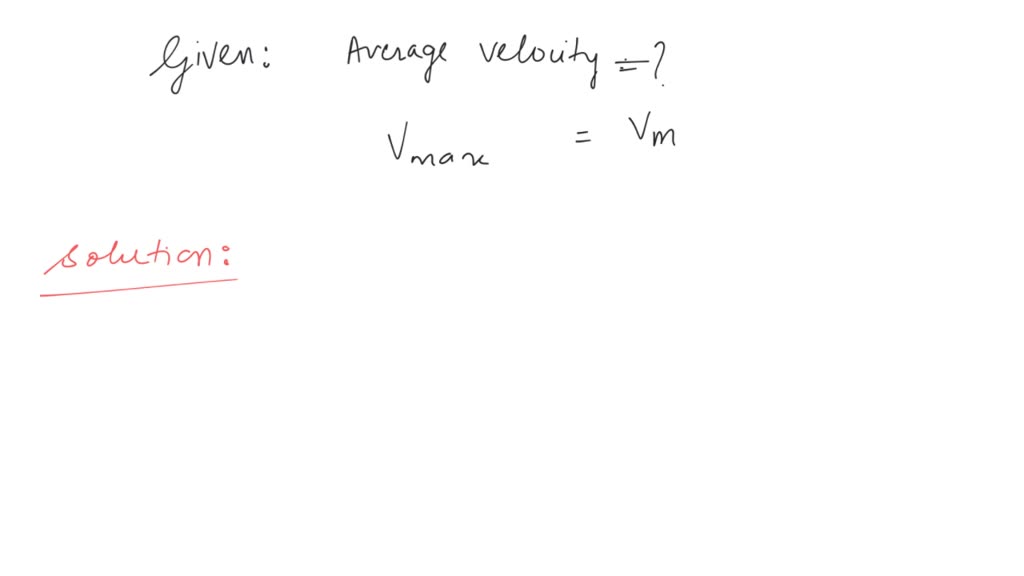 Given: Average velocity = ?
Vmax = Vm
Solution: